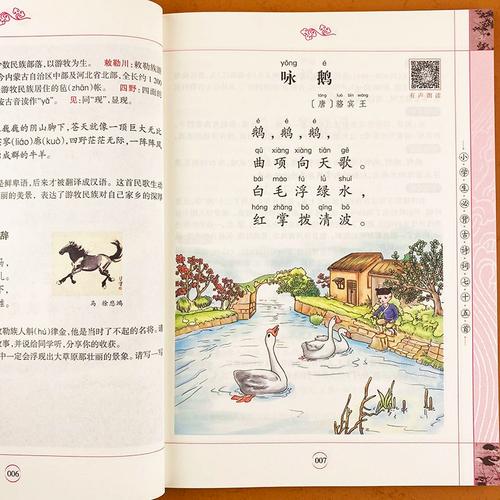 数民族部落，以游牧为生。 敕勒川：敕勒族游
今内蒙古自治区中部及河北省北部，全长约1 200
牧民族居住的毡(zhān)帐。 四野：四面的
按古音读作“yǎ”。 见：同“现”，显现。
巍巍的阴山脚下，苍天就像一顶巨大无比
寥(liáo)廓(kuò)，四野茫茫无际，一阵阵风
成群的牛羊。
是鲜卑语，后来才被翻译成汉语。这首民歌生动
丽的美景，表达了游牧民族对自己家乡的深厚
辞
马 徐悲鸿
敕勒族人斛(hú)律金，他是当时了不起的名将。请
故事，并说给同学听，分享你的收获。
中一定会浮现出大草原那壮丽的景象。请写一写
006
yǒng é
咏 鹅
táng luò bīn wáng
〔唐〕骆宾王
有声朗读
é é é
鹅，鹅，鹅，
qū xiàng xiàng tiān gē
曲项向天歌。
bái máo fú lǜ shuǐ
白毛浮绿水，
hóng zhǎng bō qīng bō
红掌拨清波。
小学生必背古诗词七十五首
007